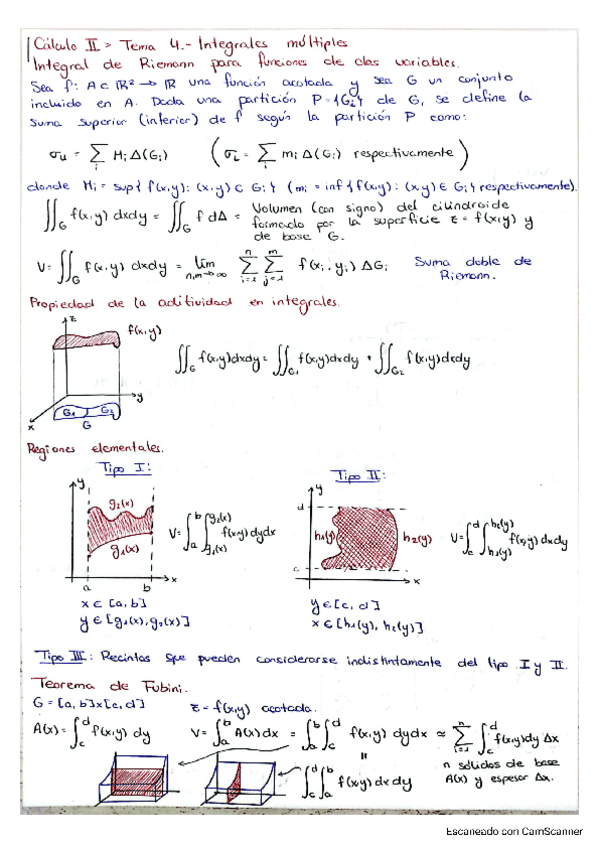 Cálculo II > Tema 4.- Integrales múltiples
Integral de Riemann para funciones de dos variables.
Sea f: A ⊂ ℝ² → ℝ una función acotada y sea G un conjunto
incluido en A. Dada una partición P={Gi} de G, se define la
suma superior (inferior) de f según la partición P como:
σu = ∑i Mi Δ(Gi) (σL = ∑i mi Δ(Gi) respectivamente)
donde Mi = sup{f(x,y): (x,y) ∈ Gi} (mi = inf{f(x,y): (x,y) ∈ Gi} respectivamente).
∬G f(x,y) dxdy = ∬G f dΔ = Volumen (con signo) del cilindroide
formado por la superficie z = f(x,y) y
de base G.
V = ∬G f(x,y) dxdy = lim n,m→∞ ∑ⁿi=1 ∑ᵐj=1 f(xi, yi) ΔGi Suma doble de
Riemann.
Propiedad de la aditividad en integrales.
z
f(x,y)
∬G f(x,y)dxdy = ∬G1 f(x,y)dxdy + ∬G2 f(x,y)dxdy
y
G1 G2
x G
Regiones elementales.
Tipo I: Tipo II:
y y
g2(x) d
V = ∫ab ∫g1(x)g2(x) f(x,y) dydx h1(y) h2(y) V = ∫cd ∫h1(y)h2(y) f(x,y) dxdy
g1(x) c
a b x x
x ∈ [a, b] y ∈ [c, d]
y ∈ [g1(x), g2(x)] x ∈ [h1(y), h2(y)]
Tipo III: Recintos que pueden considerarse indistintamente del tipo I y II.
Teorema de Fubini.
G = [a, b]x[c, d] z = f(x,y) acotada.
A(x) = ∫cd f(x,y) dy V = ∫ab A(x) dx = ∫ab ∫cd f(x,y) dydx ≈ ∑ⁿi=1 ∫cd f(x,y)dy Δx
=
n sólidos de base
∫cd ∫ab f(x,y) dxdy A(x) y espesor Δx.
Escaneado con CamScanner